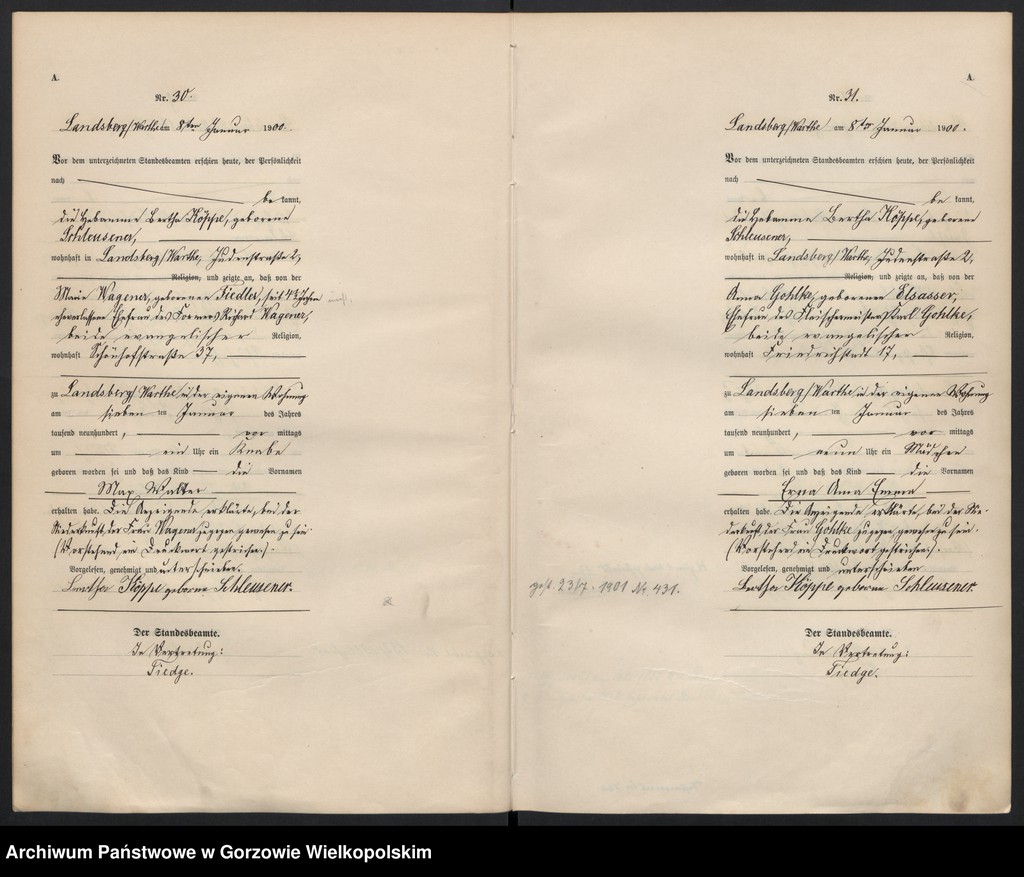 A.
Nr. 30.
Landsberg/Warthe am 8ten Januar 1900.
Vor dem unterzeichneten Standesbeamten erschien heute, der Persönlichkeit
nach
be kannt,
die Hebamme Bertha Köppe, geborene
Schleusener,
wohnhaft in Landsberg/Warthe, Judenstraße 2,
Religion, und zeigte an, daß von der
Marie Wagener, geborenen Fiedler, seit
eheverlassene Ehefrau des Formers Richard Wagener,
beide evangelischer Religion,
wohnhaft Schönhofstraße 37,
zu Landsberg/Warthe in der eigenen Wohnung
am sieben ten Januar des Jahres
tausend neunhundert, vor mittags
um ein Uhr ein Knabe
geboren worden sei und daß das Kind die Vornamen
Max Walter
erhalten habe. Die Anzeigende erklärte, bei der
Niederkunft der Frau Wagener zugegen gewesen zu sein.
(Vorstehend ein Druckwort gestrichen).
Vorgelesen, genehmigt und unterschrieben.
Bertha Köppe geborne Schleusener.
Der Standesbeamte.
In Vertretung:
Fiedge.
A.
Nr. 31.
Landsberg/Warthe am 8ten Januar 1900.
Vor dem unterzeichneten Standesbeamten erschien heute, der Persönlichkeit
nach
be kannt,
die Hebamme Bertha Köppe, geborene
Schleusener,
wohnhaft in Landsberg/Warthe, Judenstraße 2,
Religion, und zeigte an, daß von der
Anna Gohlke, geborenen Elsasser,
Ehefrau des Fleischermeisters Karl Gohlke,
beide evangelischer Religion,
wohnhaft Friedrichstadt 17,
zu Landsberg/Warthe in der eigenen Wohnung
am sieben ten Januar des Jahres
tausend neunhundert, vor mittags
um neun Uhr ein Mädchen
geboren worden sei und daß das Kind die Vornamen
Erna Anna Emma
erhalten habe. Die Anzeigende erklärte, bei der Nie-
derkunft der Frau Gohlke zugegen gewesen zu sein.
(Vorstehend ein Druckwort gestrichen).
Vorgelesen, genehmigt und unterschrieben
Bertha Köppe geborne Schleusener.
gest. 23/7. 1901 Nr. 431.
Der Standesbeamte.
In Vertretung:
Fiedge.
Archiwum Państwowe w Gorzowie Wielkopolskim